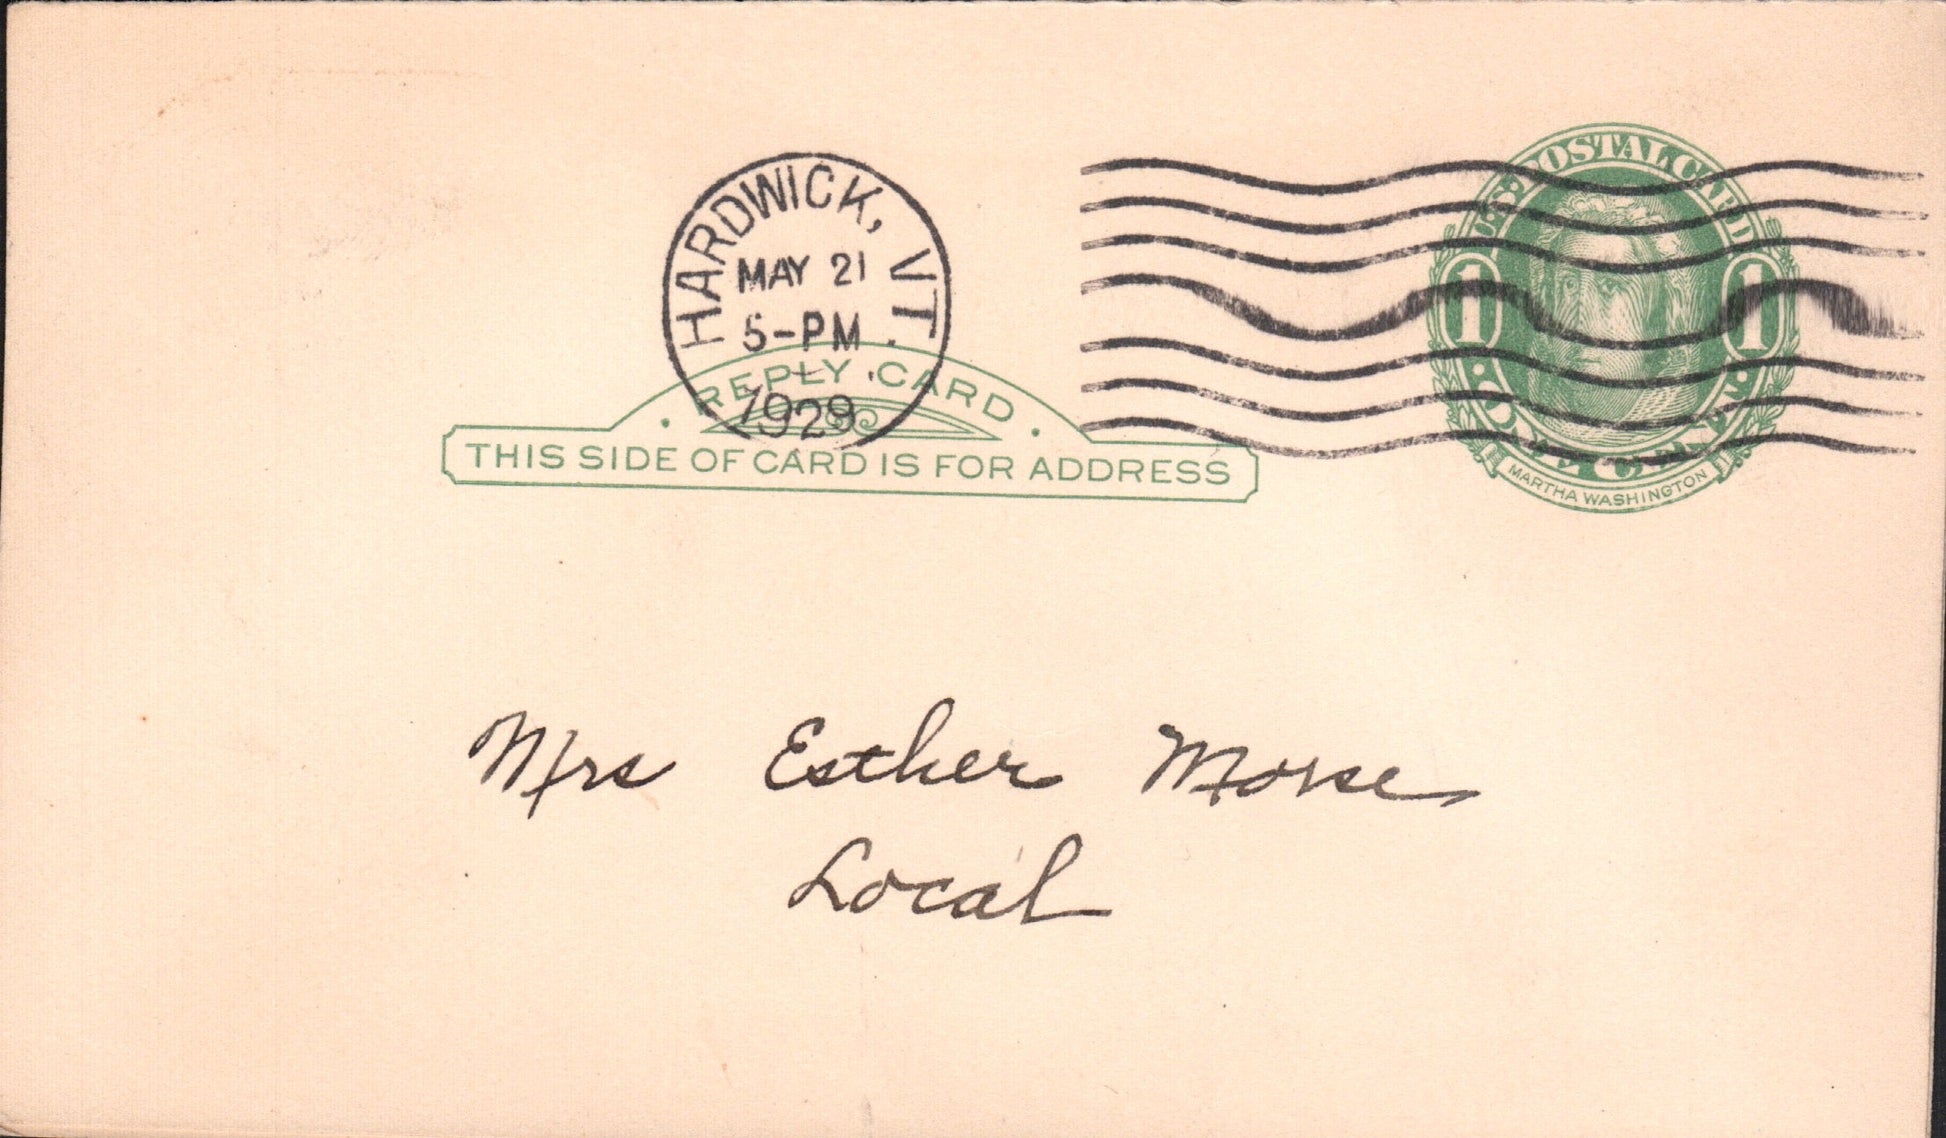 HARDWICK, VT.
MAY 21
5-PM
1929
U.S. POSTAL CARD
1 1
ONE CENT
MARTHA WASHINGTON
REPLY CARD
THIS SIDE OF CARD IS FOR ADDRESS
Mrs Esther Morse
Local